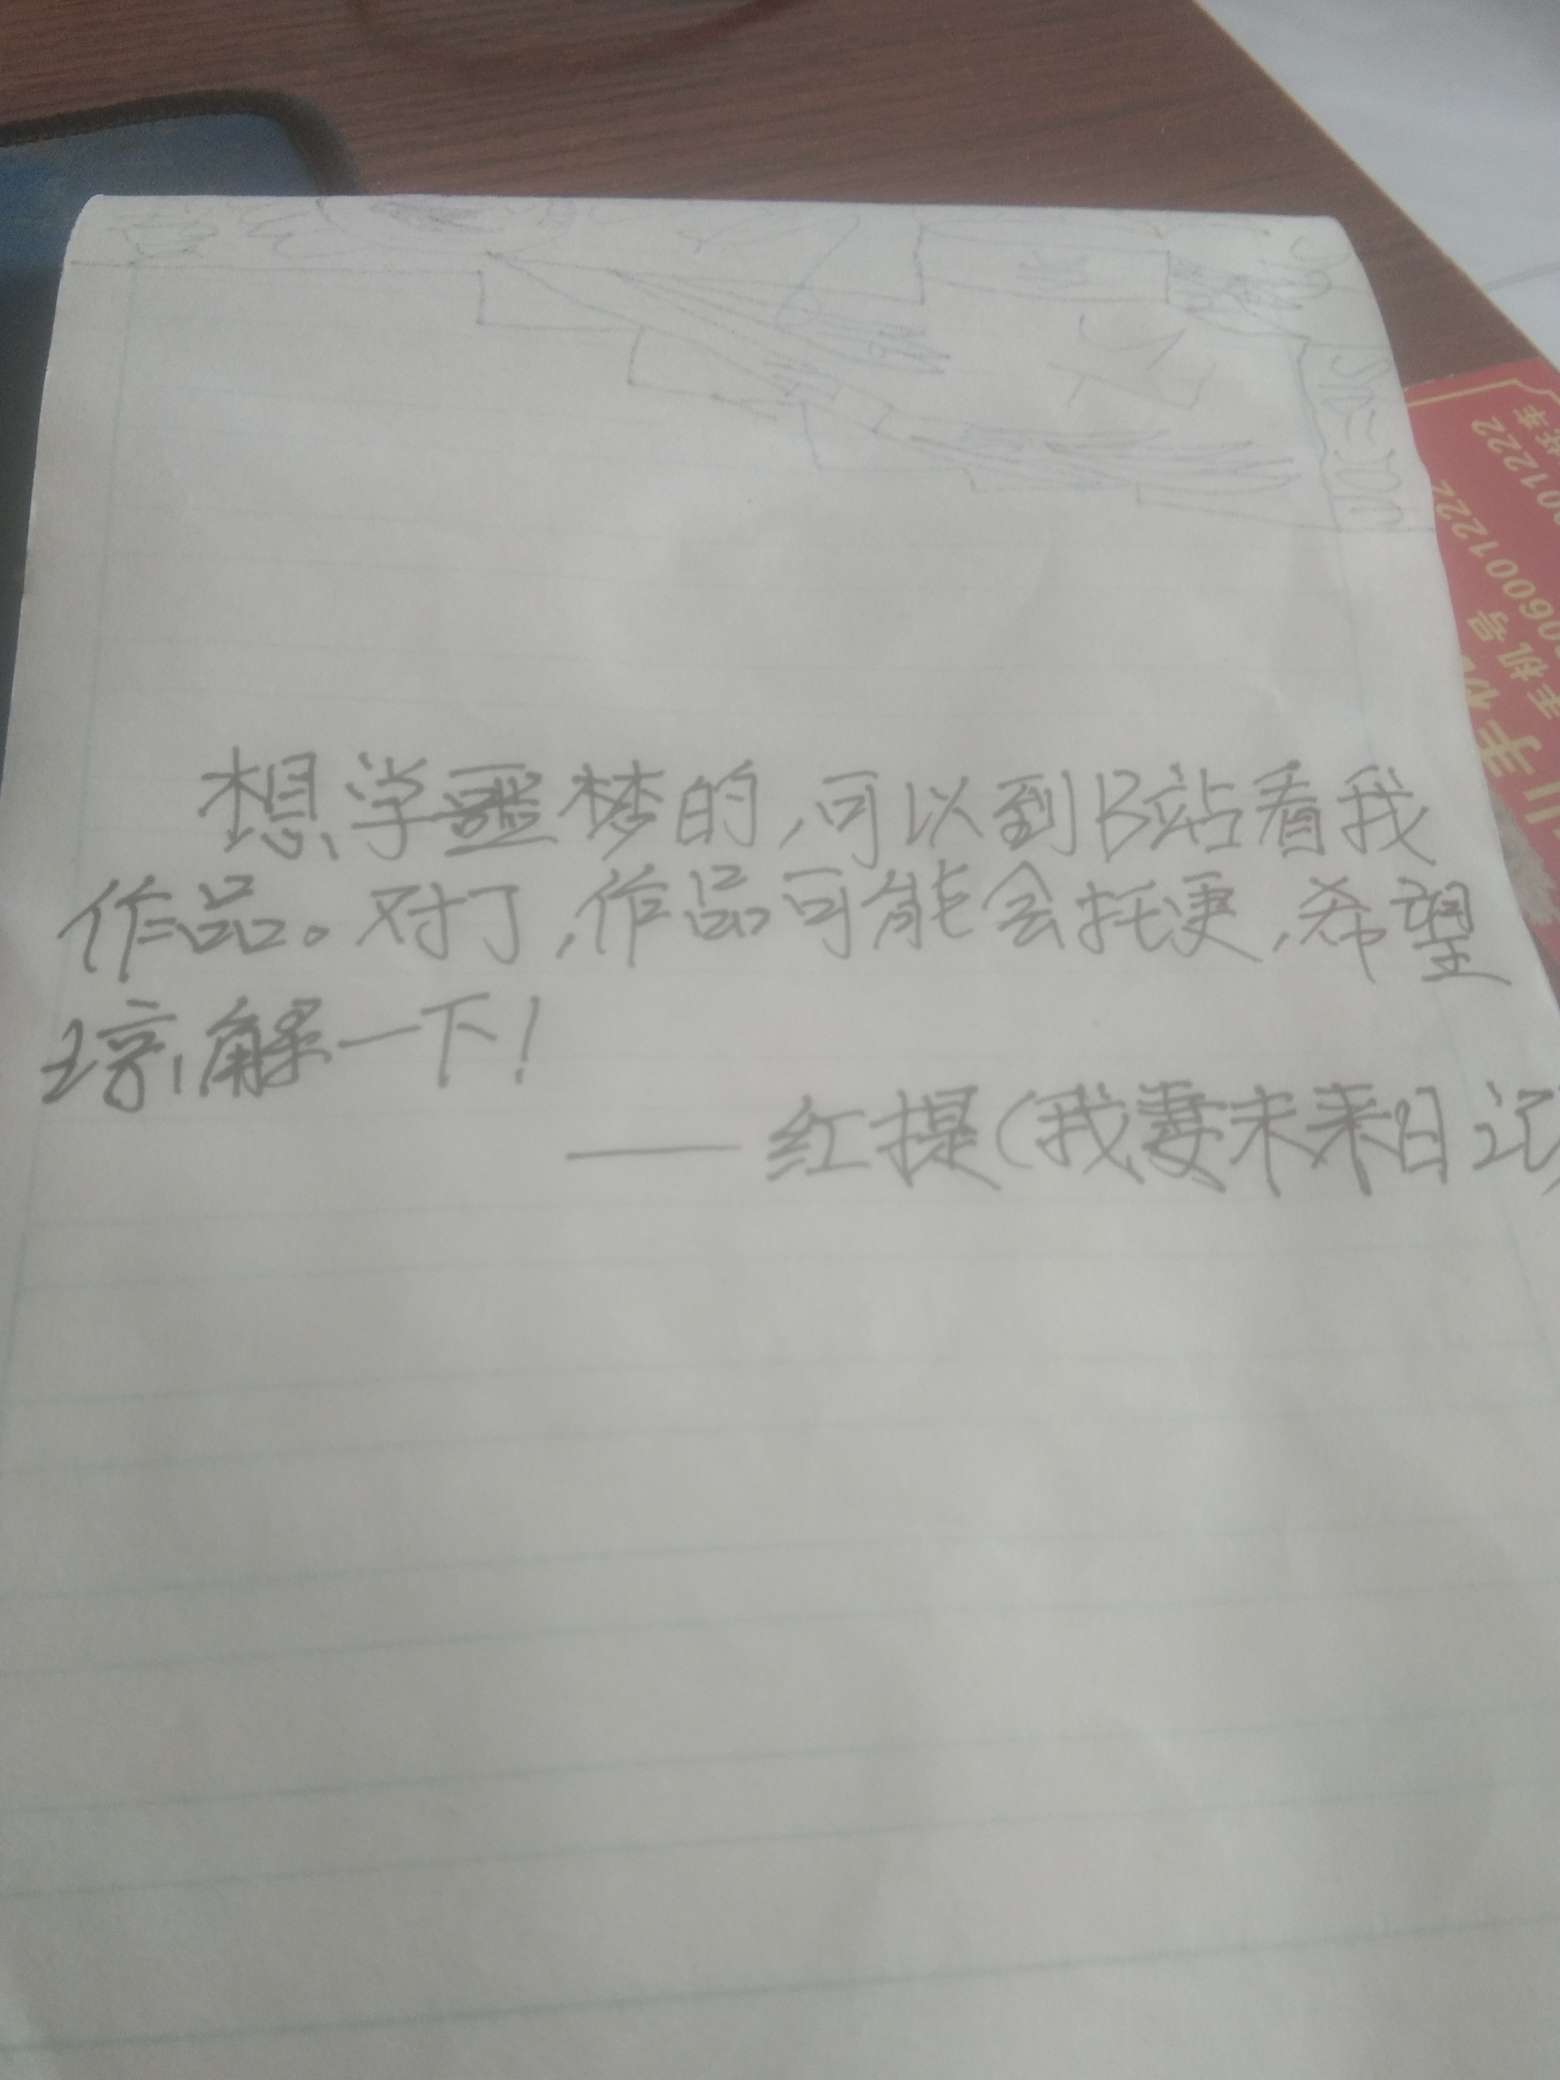 想学噩梦的,可以到B站看我
作品。对了,作品可能会托更,希望
解一下!
——红提(我妻未来日记)
手机号
06001222
001222